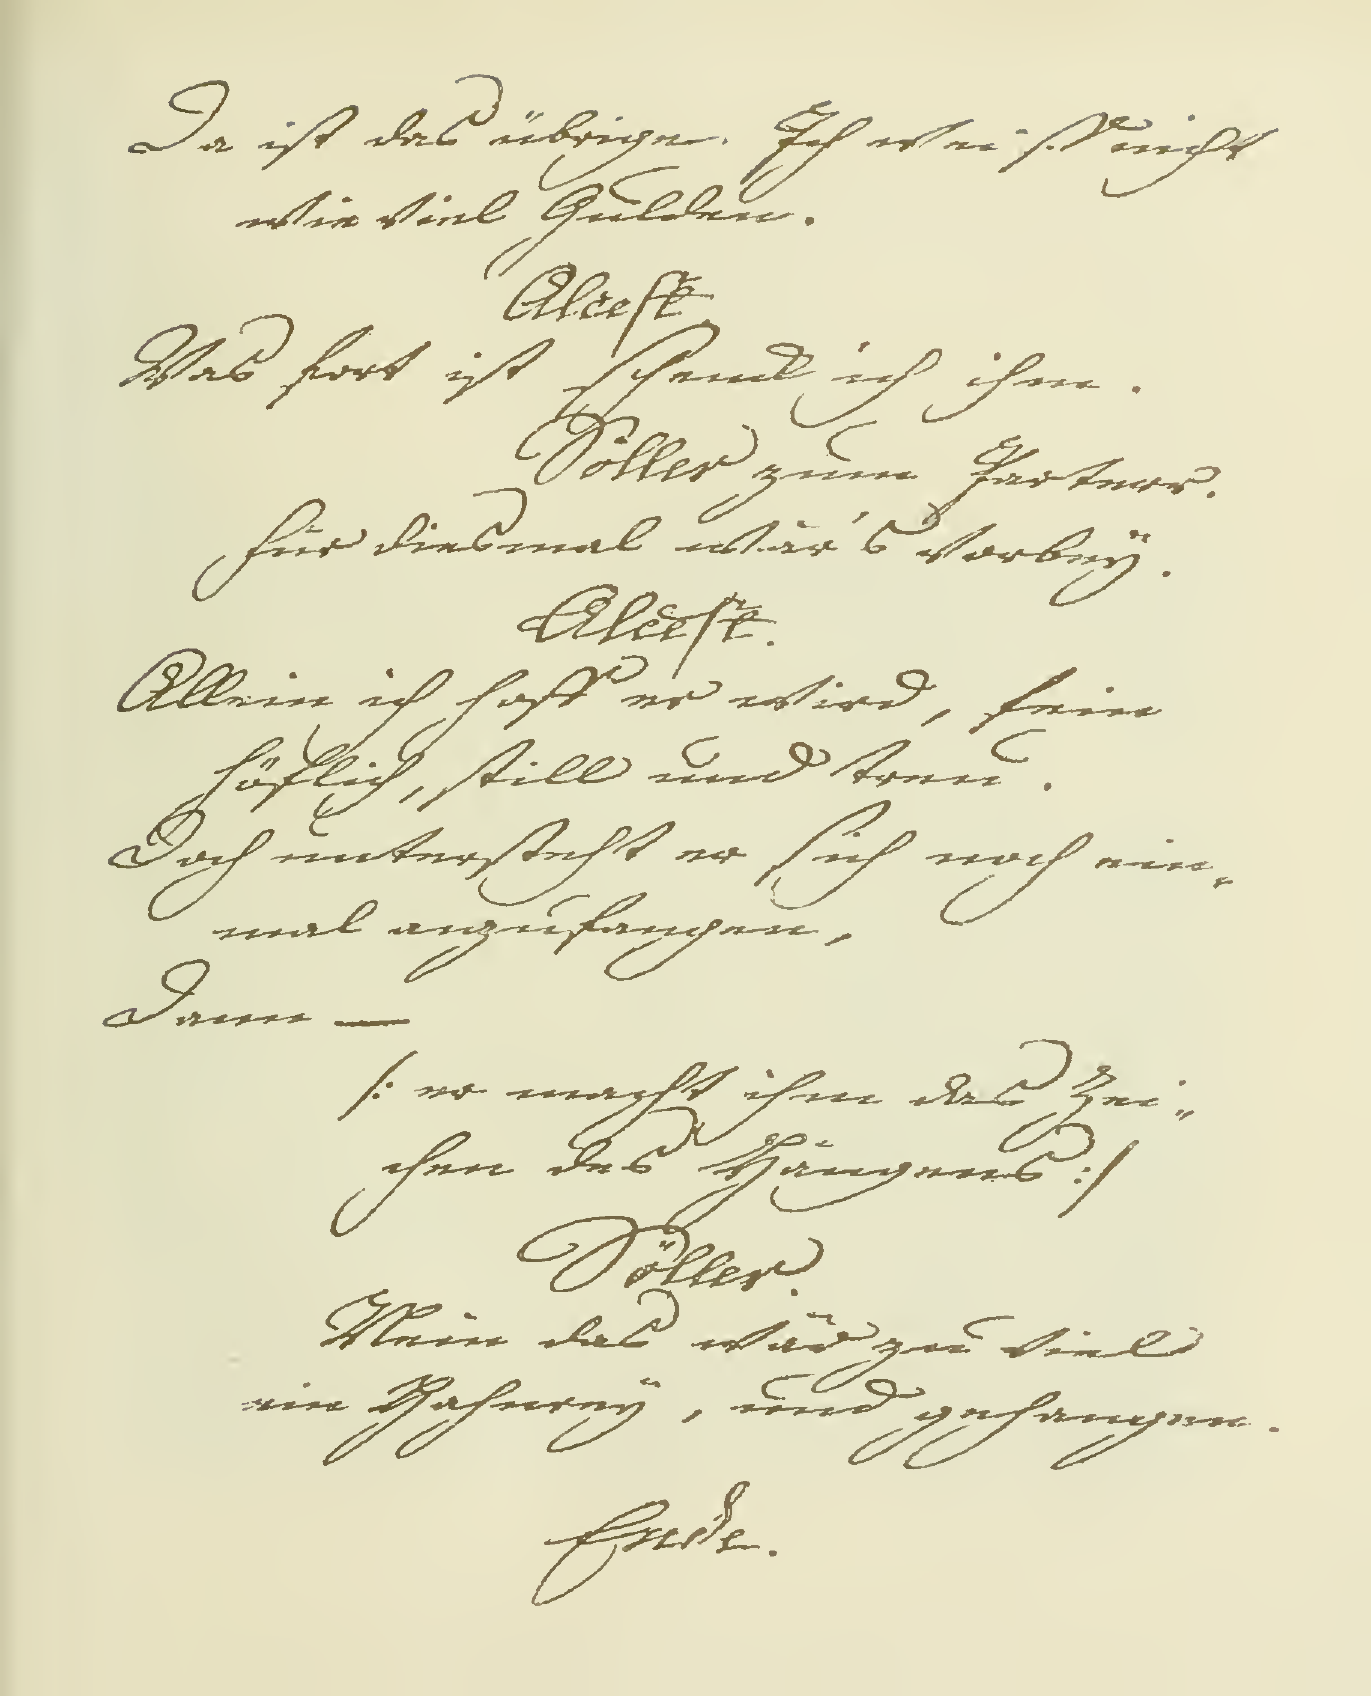 Da ist das übrige. Ich weiß nicht
wie viel Gulden.
Alcest
Was fort ist schenck ich ihm.
Söller zum Parterr.
für diesmal wär's vorbey.
Alcest.
Allein ich hoff er wird, fein
höflich, still und treu.
Doch untersteht er sich noch ein„
mal anzufangen,
Dann —
/: er macht ihm das Zei„
chen des Hängens :/
Söller.
Nein das wär zu viel
ein Hahnrey, und gehangen.
Ende.